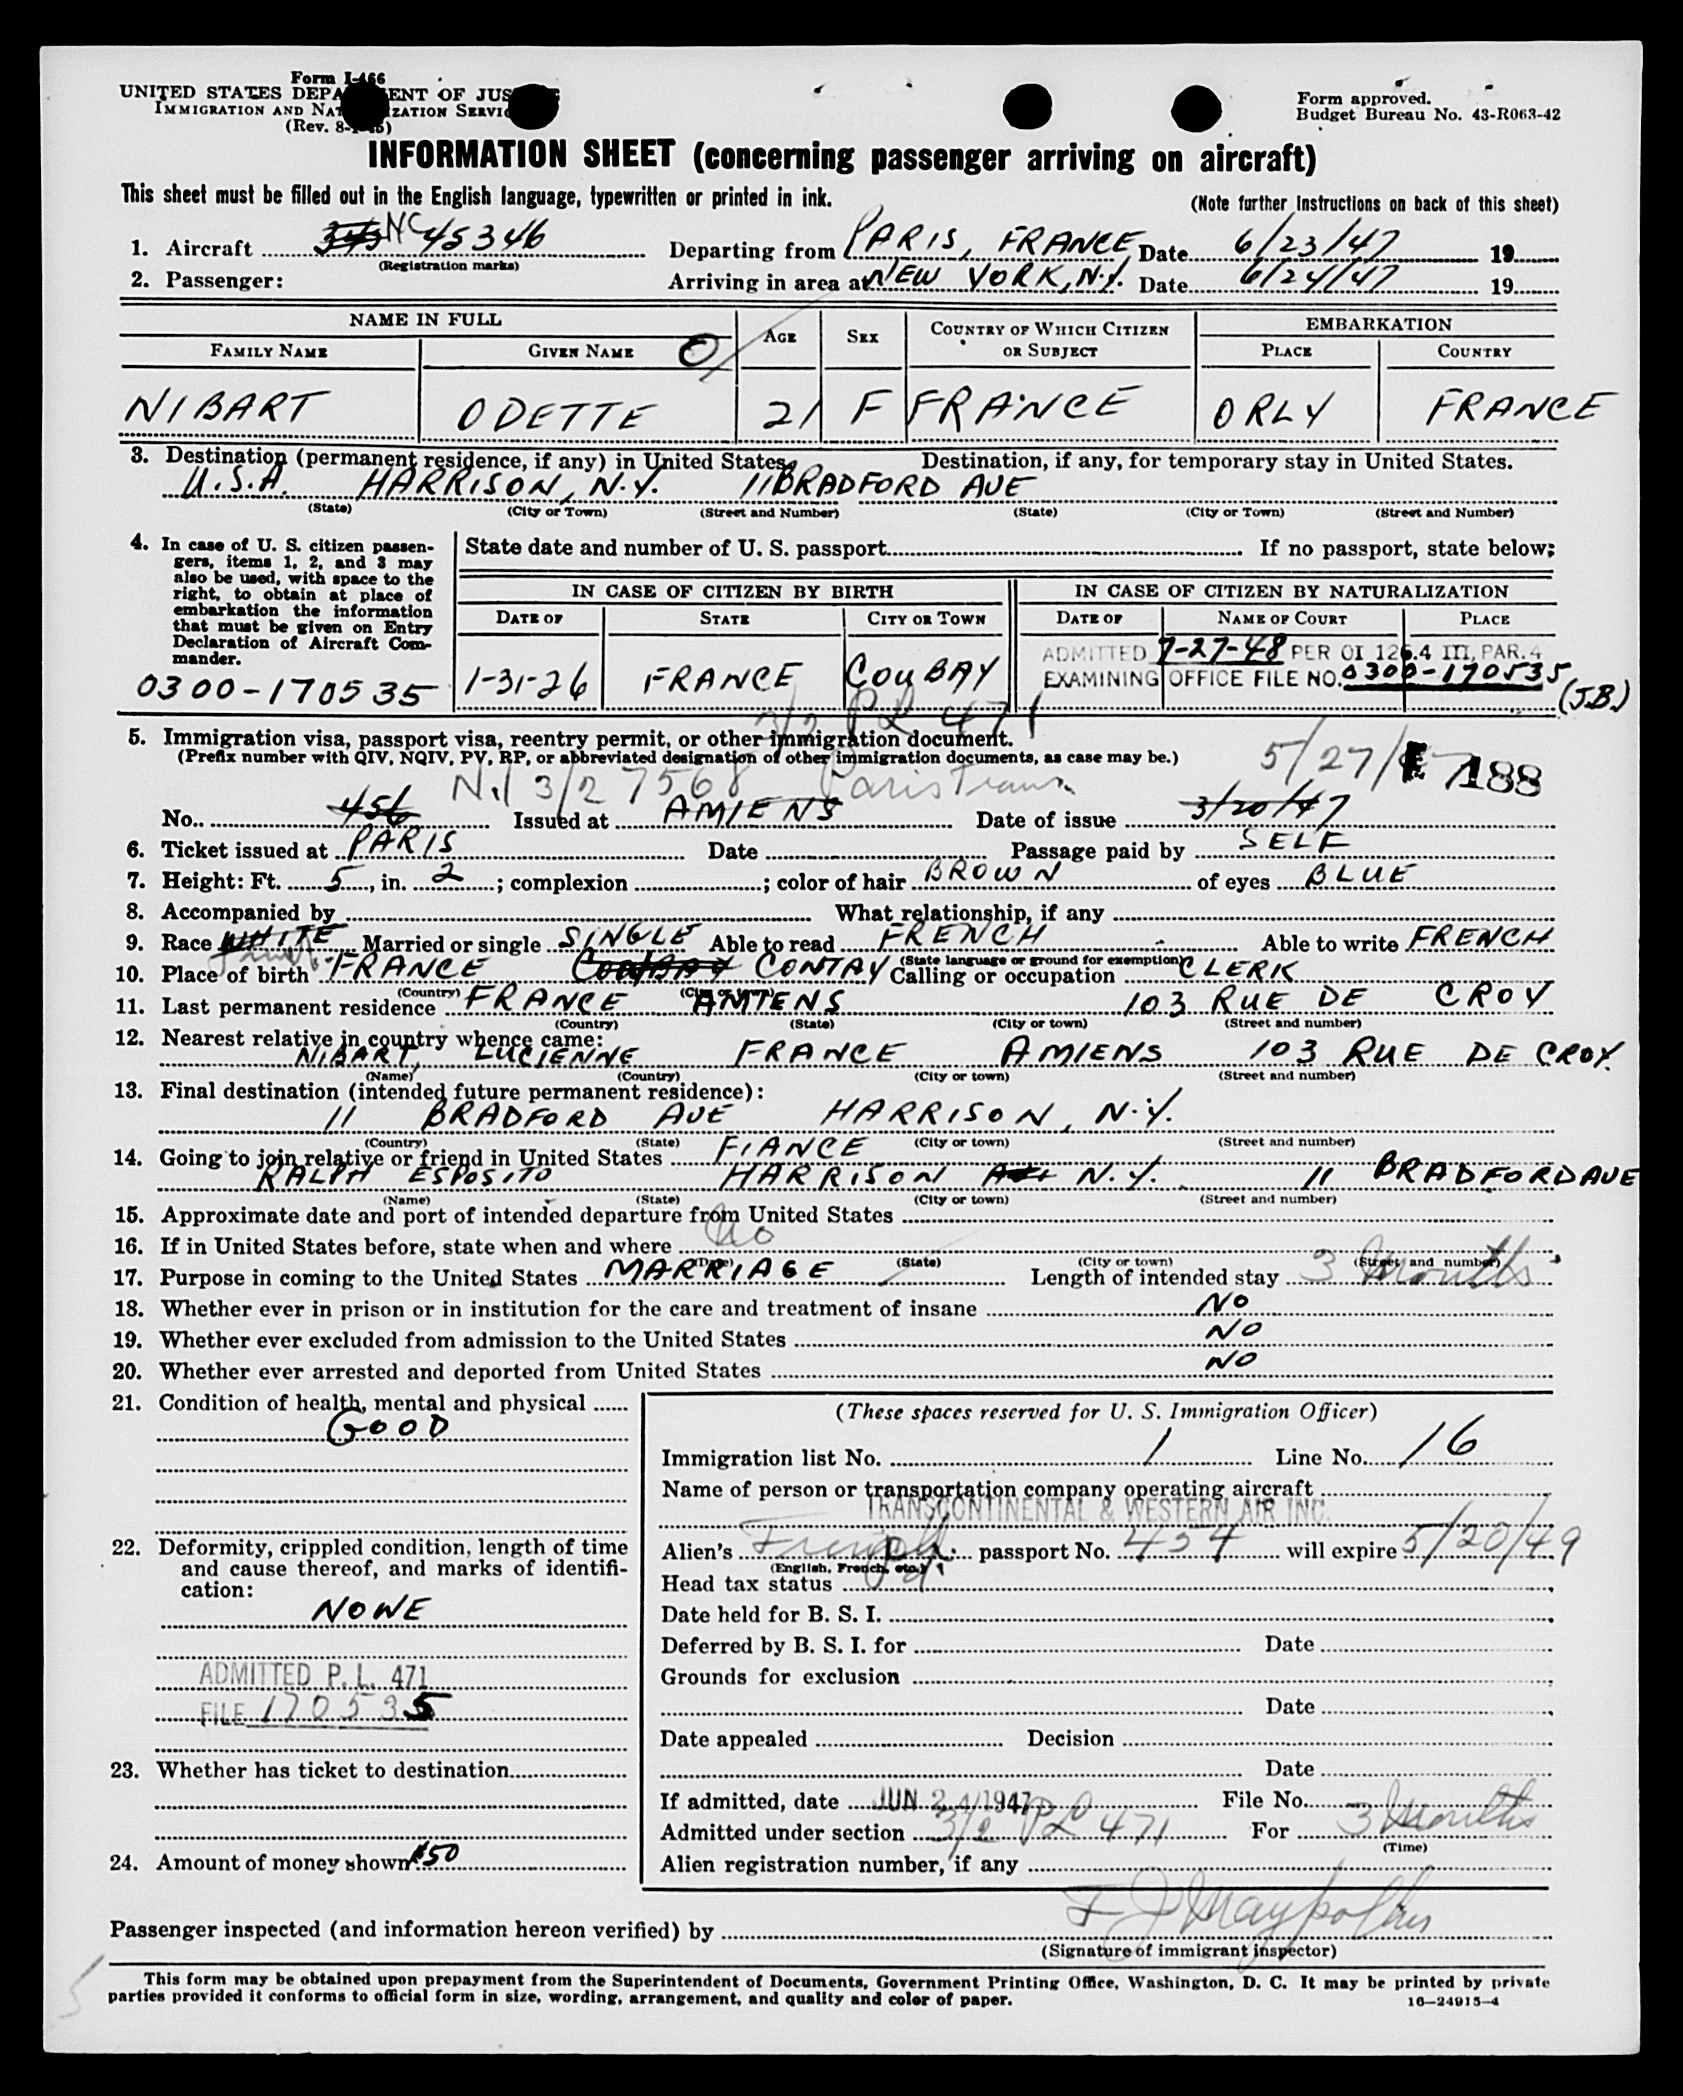 Form I-466
UNITED STATES DEPA ENT OF JUS
IMMIGRATION AND NAT IZATION SERVIC
(Rev. 8-
Form approved.
Budget Bureau No. 43-R063-42
INFORMATION SHEET (concerning passenger arriving on aircraft)
This sheet must be filled out in the English language, typewritten or printed in ink.
(Note further instructions on back of this sheet)
1. Aircraft NC 45346 Departing from PARIS, FRANCE Date 6/23/47 19
(Registration marks)
2. Passenger: Arriving in area at NEW YORK, N.Y. Date 6/24/47 19
NAME IN FULL AGE SEX COUNTRY OF WHICH CITIZEN OR SUBJECT EMBARKATION
FAMILY NAME GIVEN NAME PLACE COUNTRY
NIBART ODETTE 21 F FRANCE ORLY FRANCE
3. Destination (permanent residence, if any) in United States. Destination, if any, for temporary stay in United States.
U.S.A. HARRISON, N.Y. 11 BRADFORD AVE
(State) (City or Town) (Street and Number) (State) (City or Town) (Street and Number)
4. In case of U. S. citizen passen-
gers, items 1, 2, and 3 may
also be used, with space to the
right, to obtain at place of
embarkation the information
that must be given on Entry
Declaration of Aircraft Com-
mander.
0300-170535
State date and number of U. S. passport If no passport, state below:
IN CASE OF CITIZEN BY BIRTH IN CASE OF CITIZEN BY NATURALIZATION
DATE OF STATE CITY OR TOWN DATE OF NAME OF COURT PLACE
1-31-26 FRANCE COUBAY
ADMITTED 7-27-48 PER OI 126.4 III, PAR. 4
EXAMINING OFFICE FILE NO. 0300-170535
(J.B.)
3/2 PL 471
5. Immigration visa, passport visa, reentry permit, or other immigration document.
(Prefix number with QIV, NQIV, PV, RP, or abbreviated designation of other immigration documents, as case may be.)
5/27/47 188
3/2 7568 Paris Trans.
No. 456 Issued at AMIENS Date of issue 3/20/47
6. Ticket issued at PARIS Date Passage paid by SELF
7. Height: Ft. 5, in. 2; complexion ; color of hair BROWN of eyes BLUE
8. Accompanied by What relationship, if any
9. Race WHITE Married or single SINGLE Able to read FRENCH Able to write FRENCH
(State language or ground for exemption)
10. Place of birth FRANCE CONTAY Calling or occupation CLERK
(Country) (City or town)
11. Last permanent residence FRANCE AMIENS 103 RUE DE CROY
(Country) (State) (City or town) (Street and number)
12. Nearest relative in country whence came:
NIBART, LUCIENNE FRANCE AMIENS 103 RUE DE CROY.
(Name) (Country) (City or town) (Street and number)
13. Final destination (intended future permanent residence):
11 BRADFORD AVE HARRISON, N.Y.
(Country) (State) (City or town) (Street and number)
14. Going to join relative or friend in United States FIANCE
RALPH ESPOSITO HARRISON N.Y. 11 BRADFORD AVE
(Name) (State) (City or town) (Street and number)
15. Approximate date and port of intended departure from United States
16. If in United States before, state when and where No
(Date) (State) (City or town) (Street and number)
17. Purpose in coming to the United States MARRIAGE Length of intended stay 3 Months
18. Whether ever in prison or in institution for the care and treatment of insane NO
19. Whether ever excluded from admission to the United States NO
20. Whether ever arrested and deported from United States NO
21. Condition of health, mental and physical
GOOD
22. Deformity, crippled condition, length of time
and cause thereof, and marks of identifi-
cation:
NONE
ADMITTED P. L. 471
FILE 170535
23. Whether has ticket to destination
24. Amount of money shown $50
(These spaces reserved for U. S. Immigration Officer)
Immigration list No. 1 Line No. 16
Name of person or transportation company operating aircraft
TRANSCONTINENTAL & WESTERN AIR INC.
Alien's French passport No. 454 will expire 5/20/49
(English, French, etc.)
Head tax status
Date held for B. S. I.
Deferred by B. S. I. for Date
Grounds for exclusion
Date
Date appealed Decision
Date
If admitted, date JUN 24 1947 File No.
Admitted under section 3/2 PL 471 For 3 Months
(Time)
Alien registration number, if any
Passenger inspected (and information hereon verified) by
(Signature of immigrant inspector)
This form may be obtained upon prepayment from the Superintendent of Documents, Government Printing Office, Washington, D. C. It may be printed by private
parties provided it conforms to official form in size, wording, arrangement, and quality and color of paper.
16—24915-4